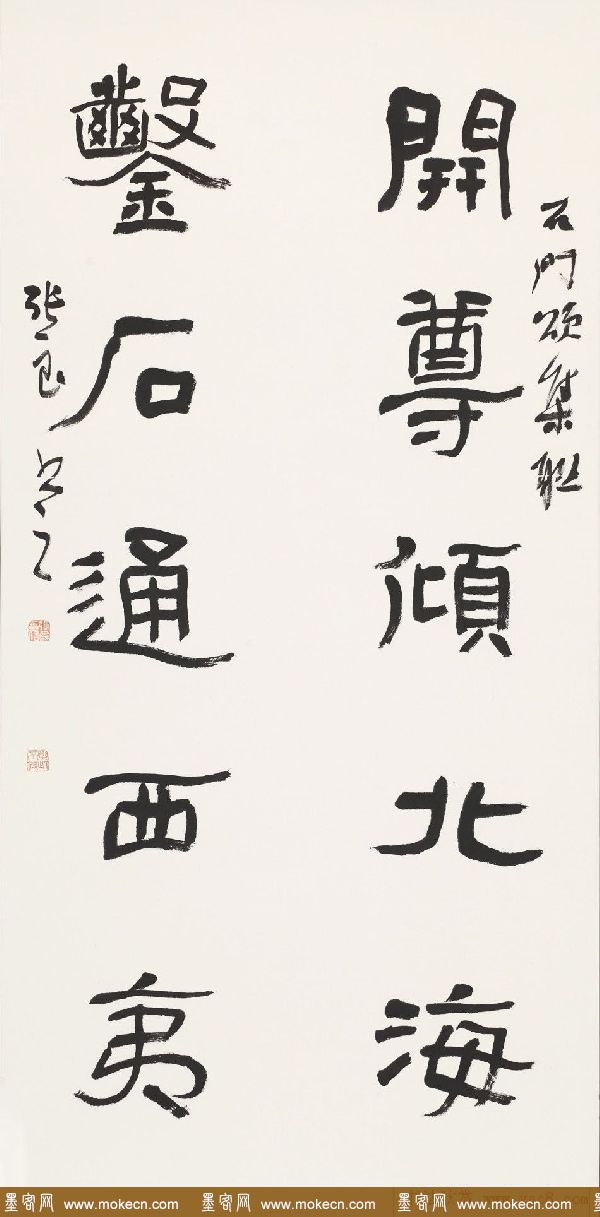 石門頌集聯
開尊傾北海
鑿石通西夷
張良書之
墨客网 www.mokecn.com 墨客网 www.mokecn.com 墨客网 www.mokecn.com